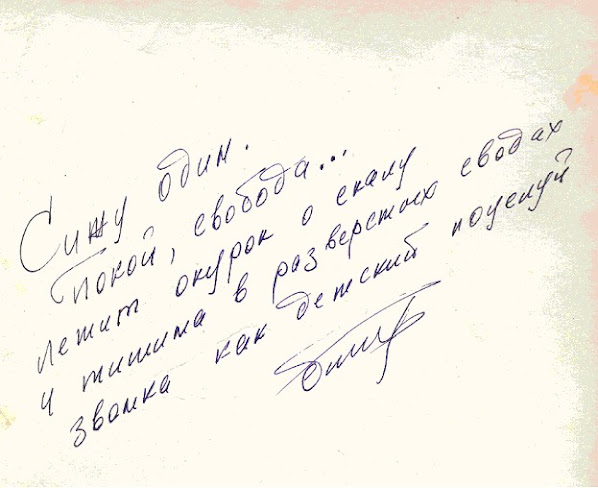 Сижу один.
Покой, свобода...
Летит окурок о скалу
и тишина в разверстых сводах
звонка как детский поцелуй